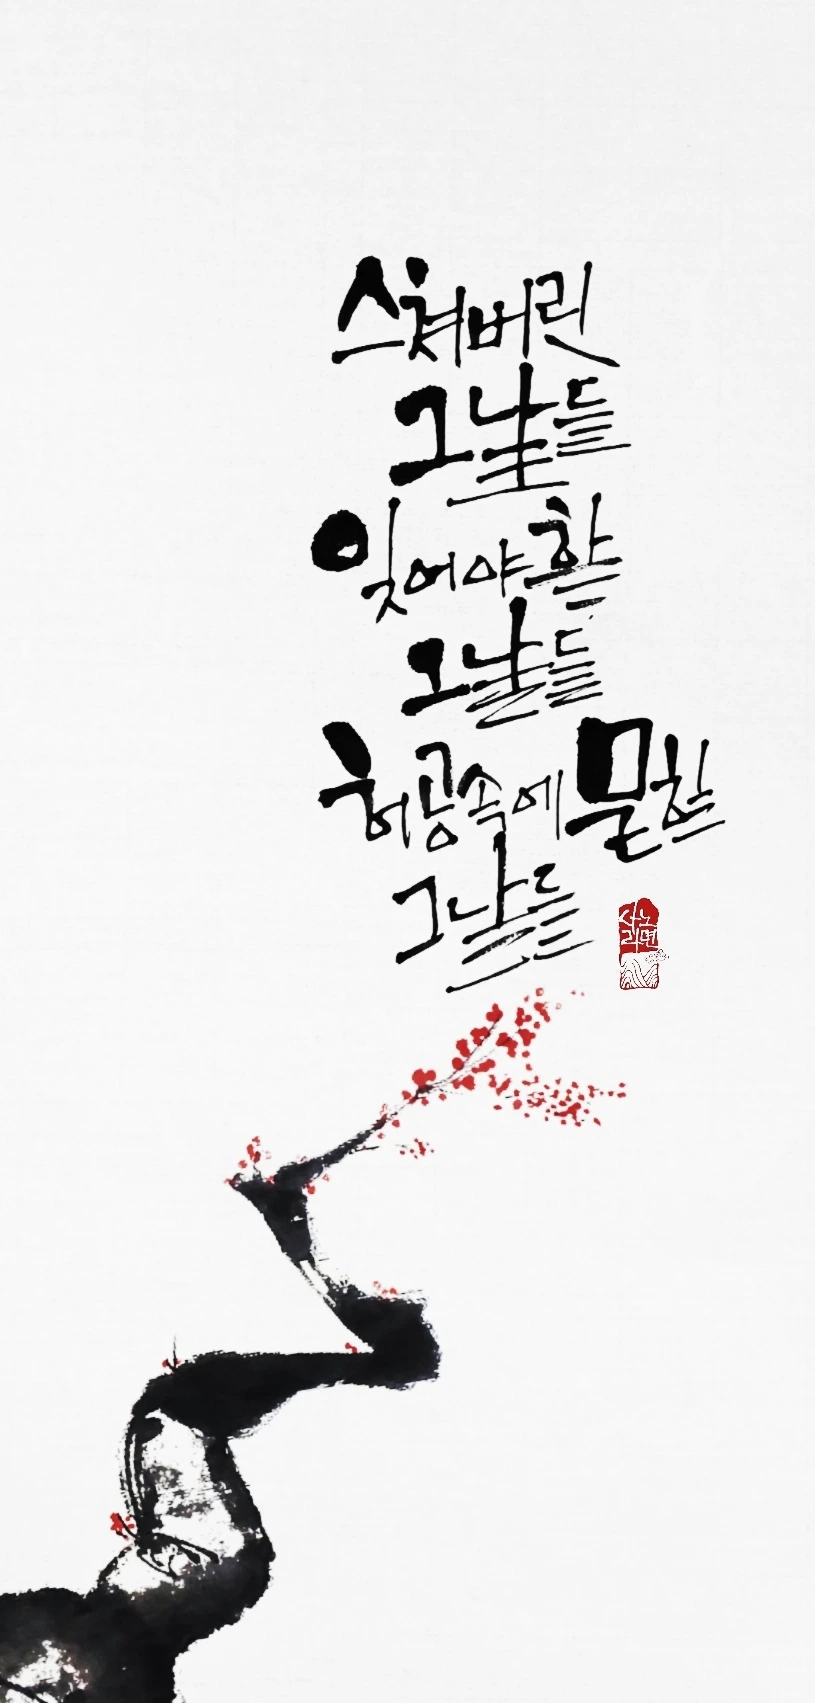 스쳐버린
그날들
잊어야 할
오날들
허공속에 묻힐
그날들